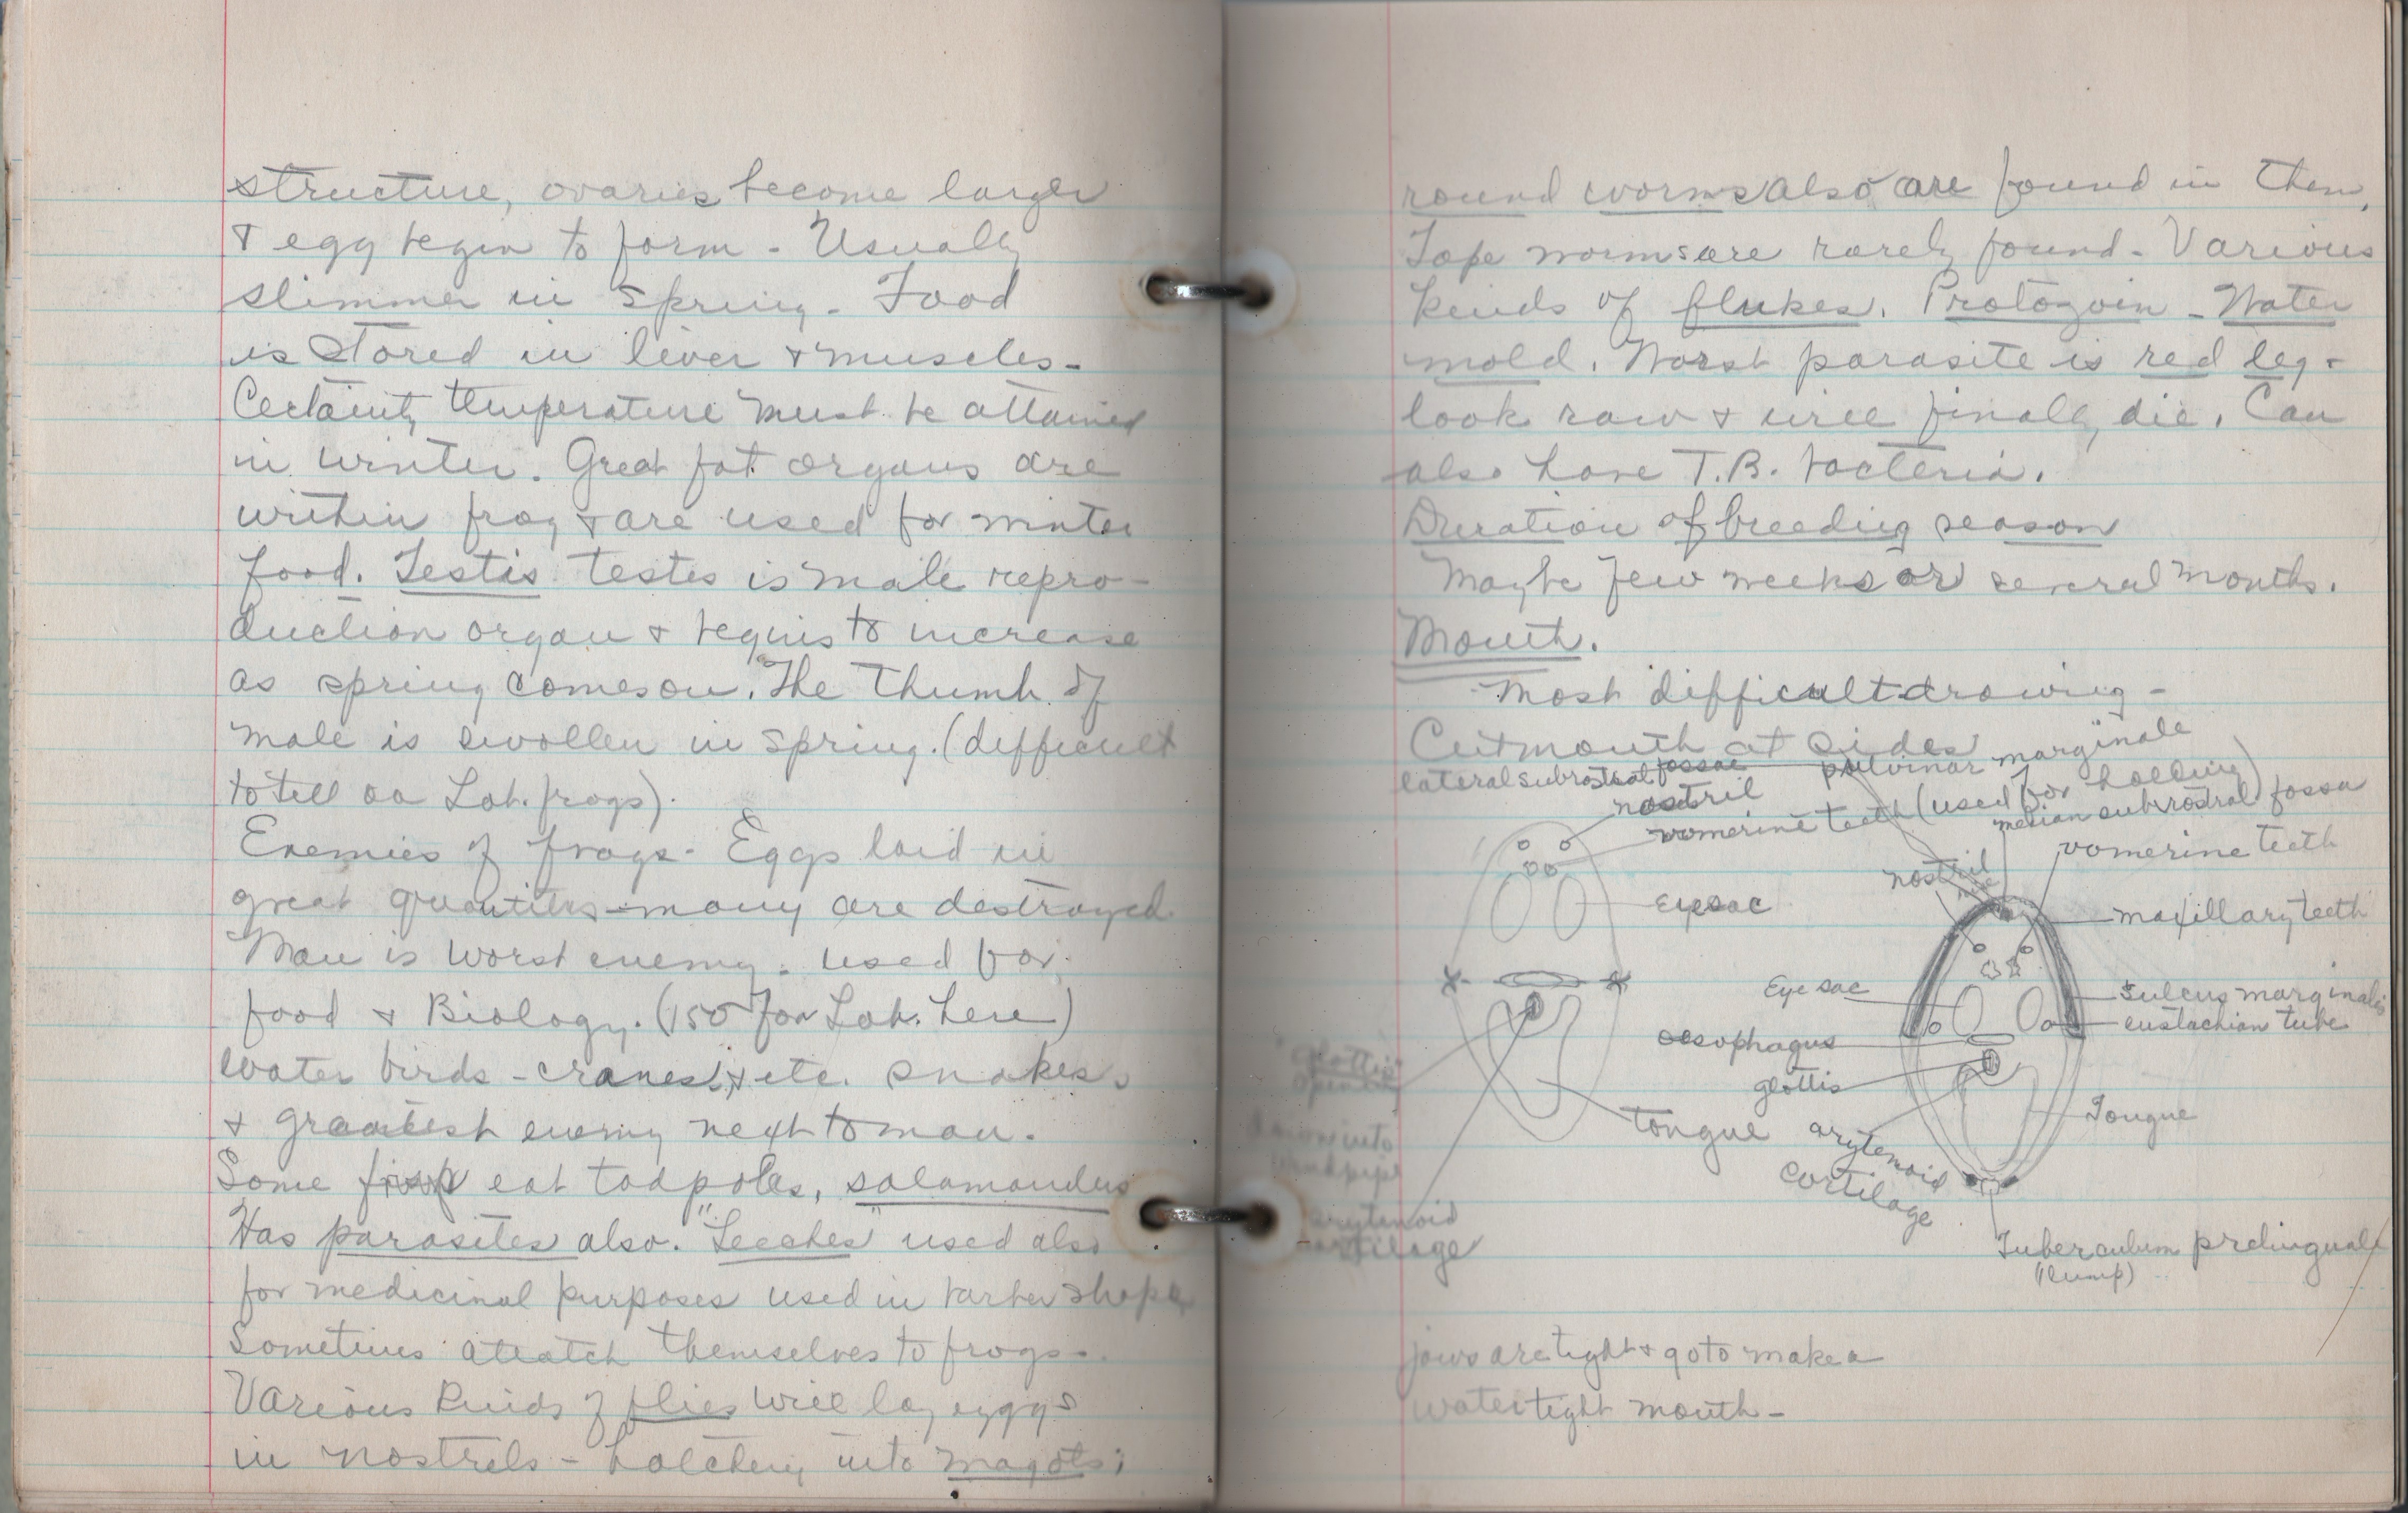 structure, ovaries become larger
& egg begin to form - Usually
slimmer in spring - Food
is stored in liver & muscles -
Certainty temperature must be attained
in winter. Great fat organs are
within frog & are used for winter
food. Testis testes is male repro-
duction organ & begins to increase
as spring comes on. The thumb of
male is swollen in spring. (difficult
to tell on Lab. frogs).
Enemies of frogs - Eggs laid in
great quantities - many are destroyed
Man is worst enemy - used for
food & Biology. (150 for Lab. here)
Water birds - cranes, & etc. snakes
& greatest enemy next to man.
Some fish eat tadpoles, salamanders
Has parasites also. "Leeches" used also
for medicinal purposes used in barber shops
Sometimes atcatch themselves to frogs -
Various kinds of flies will lay eggs
in nostrels - hatching into magots;
round worms also are found in them,
Tape worms are rarely found - Various
kinds of flukes. Protozoin - Water
mold. Worst parasite is red leg -
look raw & will finally die. Can
also have T.B. bacteria.
Duration of breeding season
Maybe few weeks or several months.
Mouth.
Most difficult drawing -
Cut mouth at sides
lateral subrostral fossae
pulvinar marginale
nostril
vomerine teeth (used for holding)
median subrostral fossa
vomerine teeth
nostril
Eye sac
maxillary teeth
Eye sac
sulcus marginalis
eustachian tube
oesophagus
glottis
glottis
Tongue
tongue
arytenoid
cartilage
windpipe
arytenoid
cartilage
Tuberculum prelinguale
(lump)
jaws are tight & go to make a
watertight mouth -